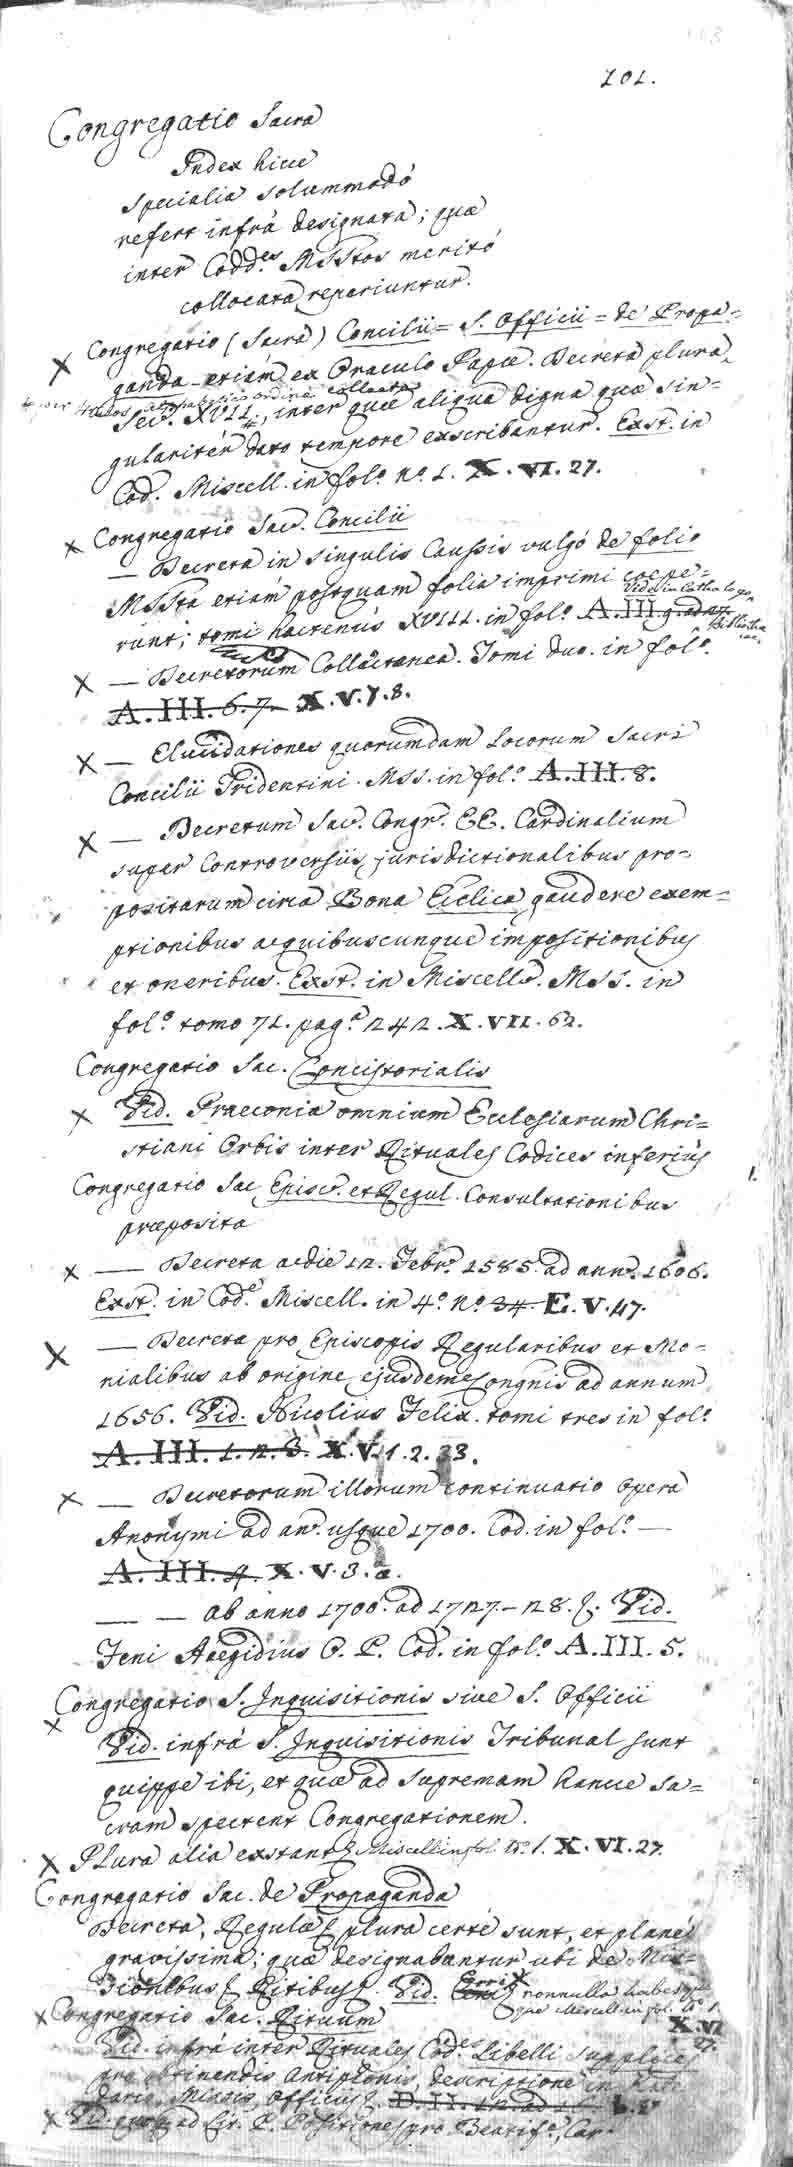 101.
Congregatio Sacra
Index hicce
specialia solummodò
refert infrà designata; quæ
inter Codd.es MSStos meritò
collocata reperiuntur.
Congregatio (Sacra) Concilii = S. Officii = de Propa=
ganda etiàm ex Oraculo Papæ. Decreta plura
alphabetico ordine collecta
Sec. XVII., inter quæ aliqua digna quæ sin=
gularitèr dato tempore exscribantur. Exst. in
Cod. Miscell. in fol.o n.o 1. X. VI. 27.
Congregatio Sac. Concilii
— Decreta in singulis Caussis vulgò de folio
MSSta etiàm postquam folia imprimi coepe=
Vide in Cathalogo
runt; tomi hactenùs XVIII. in fol.o A.III.9. ad 27.
Bibliothecae
— Decretorum Collectanea. Tomi duo. in fol.o
A.III.6.7. X.V.7.8.
— Elucidationes quorumdam Locorum Sacri
Concilii Tridentini. MSS. in fol.o A.III.8.
— Decretum Sac. Congr. EE. Cardinalium
super Controversiis jurisdictionalibus pro=
positarum circa Bona Eccl.ica gaudere exem=
ptionibus a quibuscunque impositionibus
et oneribus. Exst. in Miscell. MSS. in
fol.o tomo 71. pag.a 242. X.VII.62.
Congregatio Sac. Concistorialis
Vid. Praeconia omnium Ecclesiarum Chri=
stiani Orbis inter Rituales Codices inferiùs
Congregatio Sac Episc. et Regul. Consultationibus
præposita
— Decreta a die 12. Febr. 1585. ad ann. 1606.
Exst. in Cod.e Miscell. in 4.o n.o 34. E.V.47.
— Decreta pro Episcopis Regularibus et Mo=
nialibus ab origine ejusdem Congnis ad annum
1656. Vid. Nicolius Felix. tomi tres in fol.o
A.III.1.2.3. X.V.1.2.33.
— Decretorum illorum continuatio opera
Anonymi ad an. usque 1700. Cod. in fol.o —
A.III.4. X.V.3.a.
— — ab anno 1700. ad 1727.-28. &. Vid.
Feni Aegidius O. P. Cod. in fol.o A.III.5.
Congregatio S. Inquisitionis sive S. Officii
Vid. infrà S. Inquisitionis Tribunal sunt
quippe ibi, et quæ ad supremam hancce Sa=
cram spectent Congregationem.
Plura alia exstant & Miscell in fol N.o 1. X.VI.27.
Congregatio Sac. de Propaganda
Decreta, Regulæ & plura certè sunt, et planè
gravissima; quæ designabantur ubi de Mis=
sionibus & Ritibus &. Vid. nonnulla habes
que Miscell. in fol. N.o 1.
X.VI
27.
Congregatio Sac. Rituum
Vid. infrà inter Rituales Codd.es Libelli supplices
pro obtinendis Antiphonis, descriptione in
dario, Missis, Officiis &. D.II.
Vid. quoq. ad Lit. P. Positiones pro Beatif.e, Can